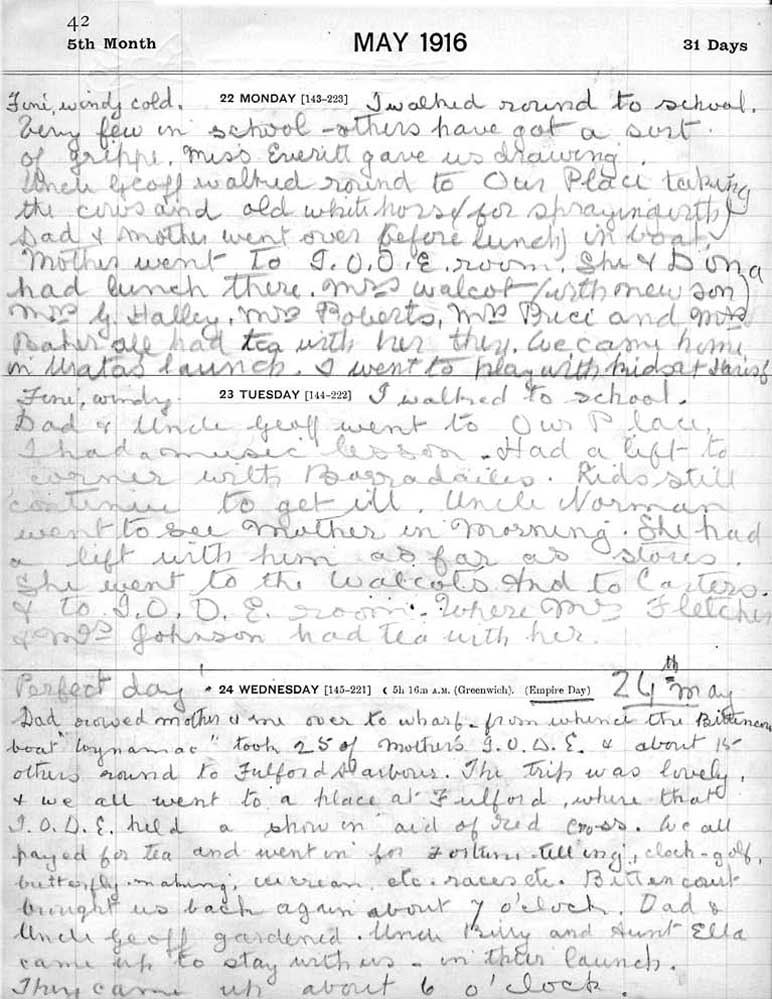 42
5th Month MAY 1916 31 Days
Fine, windy cold. 22 MONDAY [143-223] I walked round to school.
Very few in school - others have got a sort
of grippe. Miss Everitt gave us drawing.
Uncle Geoff walked round to Our Place taking
the cows and old white horse (for spraying with)
Dad & Mother went over (before lunch) in boat.
Mother went to I.O.D.E. room. She & Dona
had lunch there. Mrs Walcot (with new son)
Mrs G. Halley, Mrs Roberts, Mrs Price and Mrs
Baker all had tea with her they. We came home
in launch. I went to play with kids at
Fine, windy. 23 TUESDAY [144-222] I walked to school.
Dad & Uncle Geoff went to Our Place.
I had a music lesson. Had a lift to
corner with Borradailes. Kids still
continue to get ill. Uncle Norman
went to see Mother in Morning. She had
a lift with him as far as stores.
She went to the Walcots And to Carters.
& to I.O.D.E. room. Where Mrs Fletcher
& Mrs Johnson had tea with her.
Perfect day! 24 WEDNESDAY [145-221] ☾ 5h 16m A.M. (Greenwich). (Empire Day) 24th May
Dad rowed mother & me over to wharf - from whence the Bittencourt
boat "" took 25 of Mothers I.O.D.E. & about 15
others round to Fulford Harbour. The trip was lovely,
& we all went to a place at Fulford, where that
I.O.D.E. held a show in aid of Red Cross. We all
payed for tea and went in for Fortune-telling, clock-golf,
butterfly-making, icecream, etc. races etc. Bittencourt
brought us back again about 7 o'clock. Dad &
Uncle Geoff gardened. Uncle Billy and Aunt Ella
came up to stay with us - in their launch.
They came up about 6 o'clock.